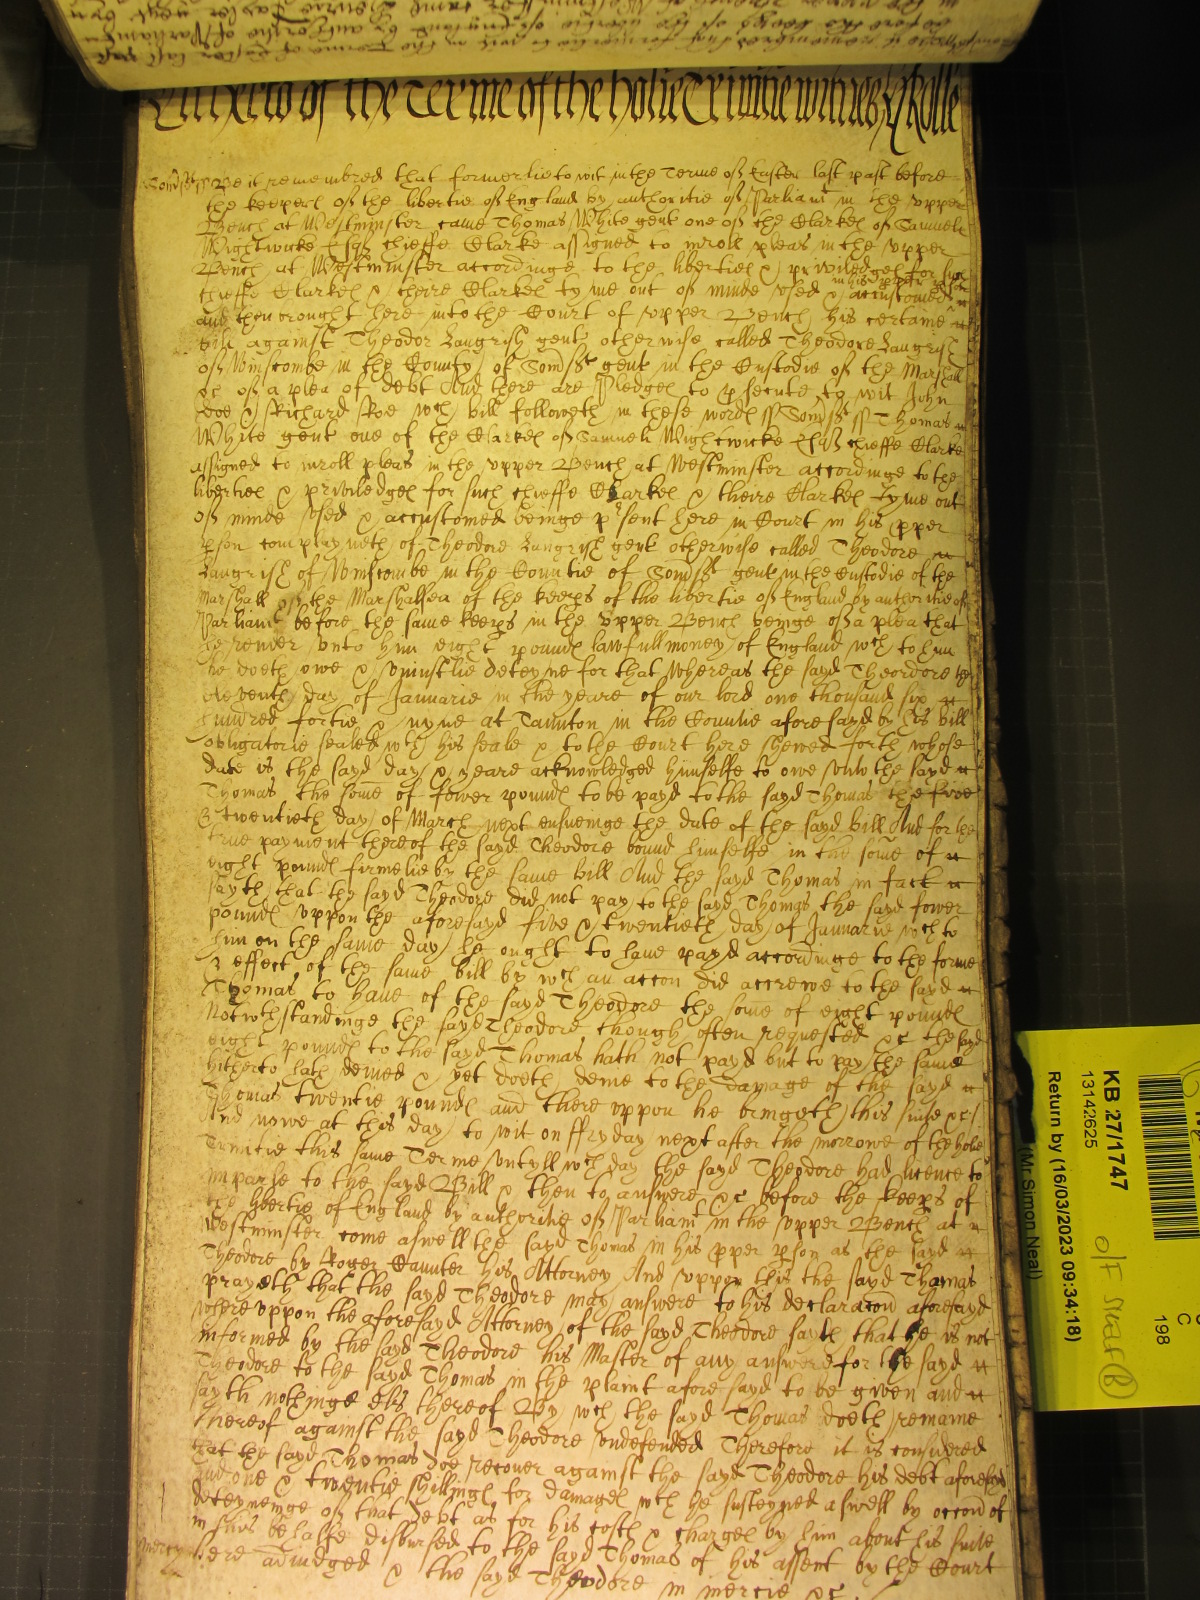 of the Terme of the holie Trinitie witnes H Rolle
Somst ss Be it remembred that formerlie to wit in the Terme of Easter last past before
the keeperℓ of the libertie of England by authoritie of Parliamt in the vpper
Bench at Westminster came Thomas White gent one of the Clarkeℓ of Samuell
Wightwicke Esqr cheiffe Clarke assigned to inroll pleas in the vpper
Bench at Westminster accordinge to the libertieℓ & priviledgeℓ for such
cheiffe Clarkeℓ & theire Clarkeℓ tyme out of minde vsed & accustomed
in his pper
and then brought here into the Court of vpper Bench his certaine
bill against Theodor Langrish gent otherwise called Theodore Langrish
of Winscombe in the County of Somst gent in the Custodie of the Marshall
&c of a plea of debt And there are Pledgeℓ to psecute to wit John
Doe & Richard Roe wch bill followeth in these wordℓ ss Somst ss Thomas
White gent one of the Clarkeℓ of Samuell Wightwicke Esqr cheiffe Clarke
assigned to inroll pleas in the vpper Bench at Westminster accordinge to the
libertieℓ & priviledgeℓ for such cheiffe Clarkeℓ & theire Clarkeℓ tyme out
of minde vsed & accustomed beinge psent here in Court in his pper
pson complayneth of Theodore Langrish gent otherwise called Theodore
Langrish of Winscombe in the Countie of Somst gent in the Custodie of the
Marshall of the Marshalsea of the keeps of the libertie of England by authoritie of
Parliamt before the same keeps in the vpper Bench beinge of a plea that
he render vnto him eight poundℓ lawfull money of England wch to him
he doeth owe & vniustlie deteyne for that whereas the sayd Theordore the
day of Januarie in the yeare of our lord one thousand six
hundred fortie & nyne at Taunton in the Countie aforesayd by his bill
obligatorie sealed wth his seale & to the Court here shewed forth whose
date is the sayd day & yeare acknowledged himselfe to owe vnto the sayd
Thomas the some of fower poundℓ to be payd to the sayd Thomas the five
& twentieth day of March next ensueinge the date of the sayd bill And for the
true payment thereof the sayd Theodore bound himselfe in the some of
eight poundℓ firmelie by the same bill And the sayd Thomas in fact
sayth that the sayd Theodore did not pay to the sayd Thomas the sayd fower
poundℓ vppon the aforesayd five & twentieth day of Januarie wch to
him on the same day he ought to have payd accordinge to the forme
& effect of the same bill by wch an accon did accrewe to the sayd
Thomas to have of the sayd Theodore the some of eight poundℓ
Notwthstandinge the sayd Theodore though often requested &c the sayd
eight poundℓ to the sayd Thomas hath not payd but to pay the same
hitherto hath denied & yet doeth denie to the damage of the sayd
Thomas twentie poundℓ and there vppon he bringeth this suite &c
And nowe at this day to wit on ffryday next after the morrowe of the holie
Trinitie this same Terme vntyll wch day the sayd Theodore had licence to
imparle to the sayd Bill & then to answere &c before the keeps of
the libertie of England by authoritie of Parliamt in the vpper Bench at
Westminster come aswell the sayd Thomas in his pper pson as the sayd
Theodore by Roger Gaunter his Attorney And vppon this the sayd Thomas
prayeth that the sayd Theodore may answere to his declaracon aforesayd
where vppon the aforesayd Attorney of the sayd Theodore sayth that he is not
informed by the sayd Theodore his Master of any answere for the sayd
Theodore to the sayd Thomas in the plaint aforesayd to be given and
sayth nothinge els thereof By wch the sayd Thomas doeth remaine
thereof against the sayd Theodore vndefended Therefore it is considered
that the sayd Thomas doe recover against the sayd Theodore his debt aforesayd
and one & twentie shillingℓ for damageℓ wch he susteyned aswell by occon of
deteyneinge of that debt as for his costℓ & chargeℓ by him about his suite
in this behalfe disbursed to the sayd Thomas of his assent by the Court
mercy here adiudged & the sayd Theodore in mercie &c
KB 27/1747
13142625
Return by (16/03/2023 09:34:18)
(Mr Simon Neal)
C
198